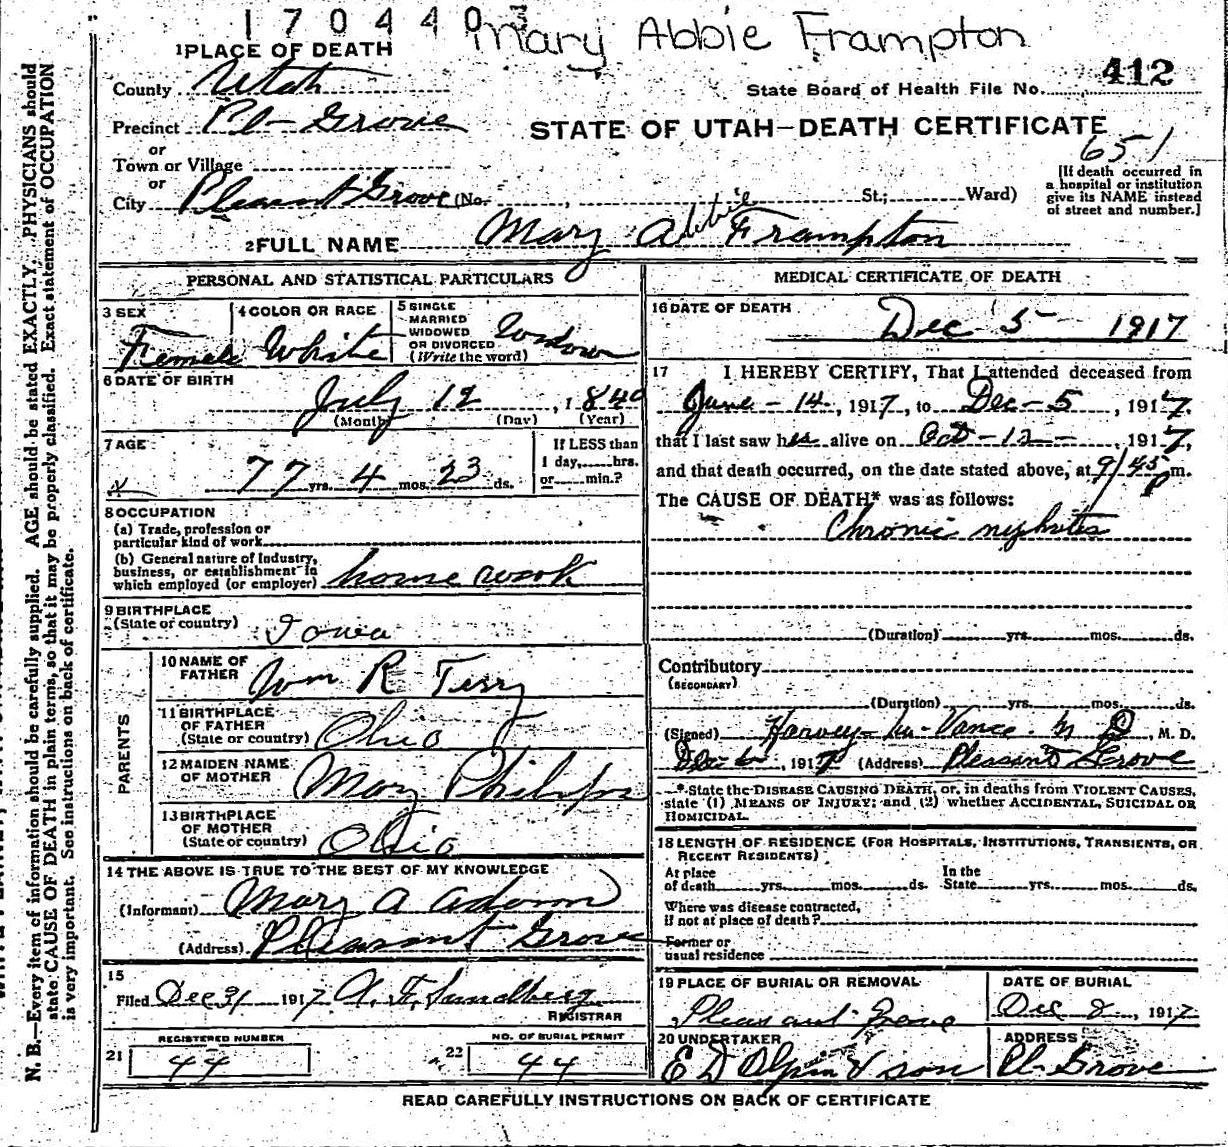 170440
Mary Abbie Frampton
412
State Board of Health File No.
STATE OF UTAH—DEATH CERTIFICATE
651
1 PLACE OF DEATH
County Utah
Precinct Pl- Grove
or
Town or Village
or
City Pleasant Grove (No. , St.; Ward)
[If death occurred in
a hospital or institution
give its NAME instead
of street and number.]
2 FULL NAME Mary Abbie Frampton
PERSONAL AND STATISTICAL PARTICULARS
3 SEX Female
4 COLOR OR RACE White
5 SINGLE
MARRIED
WIDOWED
OR DIVORCED
(Write the word) Widow
6 DATE OF BIRTH
July 12, 1840
(Month) (Day) (Year)
7 AGE
77 yrs. 4 mos. 23 ds.
If LESS than
1 day, hrs.
or min.?
8 OCCUPATION
(a) Trade, profession or
particular kind of work
(b) General nature of Industry,
business, or establishment in
which employed (or employer) house work
9 BIRTHPLACE
(State or country) Iowa
PARENTS
10 NAME OF
FATHER Wm R Terry
11 BIRTHPLACE
OF FATHER
(State or country) Ohio
12 MAIDEN NAME
OF MOTHER Mary Philips
13 BIRTHPLACE
OF MOTHER
(State or country) Ohio
14 THE ABOVE IS TRUE TO THE BEST OF MY KNOWLEDGE
(Informant) Mary A
(Address) Pleasant Grove
15
Filed Dec 31 1917 A. F. Sandberg
REGISTRAR
REGISTERED NUMBER
21 44
NO. OF BURIAL PERMIT
22 44
MEDICAL CERTIFICATE OF DEATH
16 DATE OF DEATH
Dec 5 - 1917
17 I HEREBY CERTIFY, That I attended deceased from
June - 14, 1917, to Dec - 5, 1917.
that I last saw her alive on Oct - 12 -, 1917,
and that death occurred, on the date stated above, at 9/45 p m.
The CAUSE OF DEATH* was as follows:
Chronic nephritis
(Duration) yrs. mos. ds.
Contributory
(SECONDARY)
(Duration) yrs. mos. ds.
(Signed) Harvey Vance. M D, M. D.
Dec 6, 1917 (Address) Pleasant Grove
*State the DISEASE CAUSING DEATH, or, in deaths from VIOLENT CAUSES,
state (1) MEANS OF INJURY; and (2) whether ACCIDENTAL, SUICIDAL OR
HOMICIDAL.
18 LENGTH OF RESIDENCE (FOR HOSPITALS, INSTITUTIONS, TRANSIENTS, OR
RECENT RESIDENTS)
At place
of death yrs. mos. ds.
In the
State yrs. mos. ds.
Where was disease contracted,
if not at place of death?
Former or
usual residence
19 PLACE OF BURIAL OR REMOVAL
Pleasant Grove
DATE OF BURIAL
Dec 8, 1917
20 UNDERTAKER
E D Olpin & son
ADDRESS
Pl- Grove
READ CAREFULLY INSTRUCTIONS ON BACK OF CERTIFICATE
N. B.—Every item of information should be carefully supplied. AGE should be stated EXACTLY. PHYSICIANS should
state CAUSE OF DEATH in plain terms, so that it may be properly classified. Exact statement of OCCUPATION
is very important. See instructions on back of certificate.